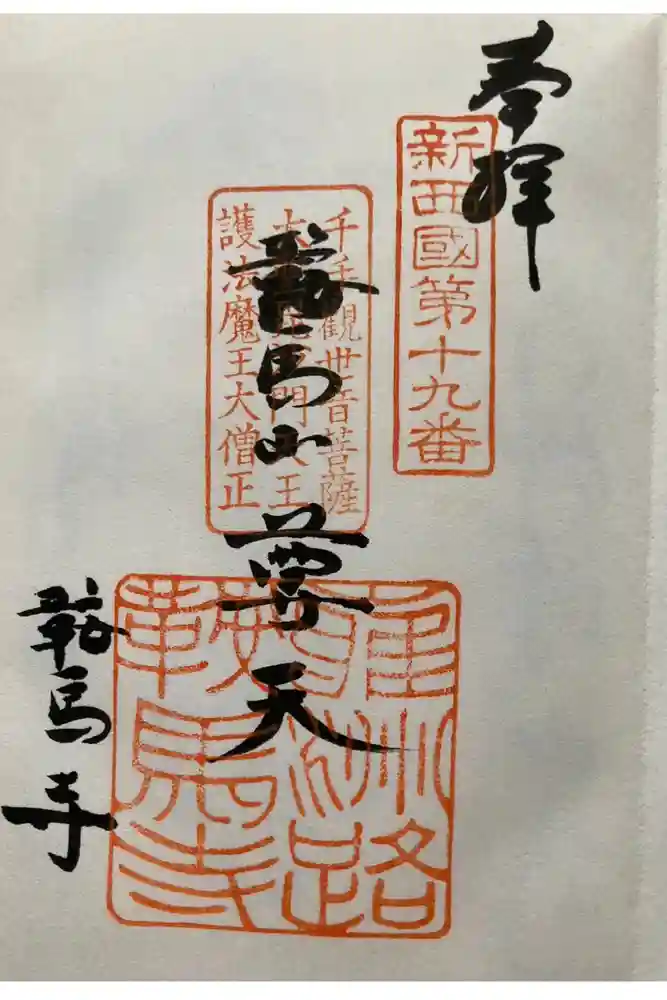 奉拝
新西國第十九番
千手観世音菩薩
大毘沙門天王
護法魔王大僧正
鞍馬山
尊天
雍州路
鞍馬寺
鞍馬寺